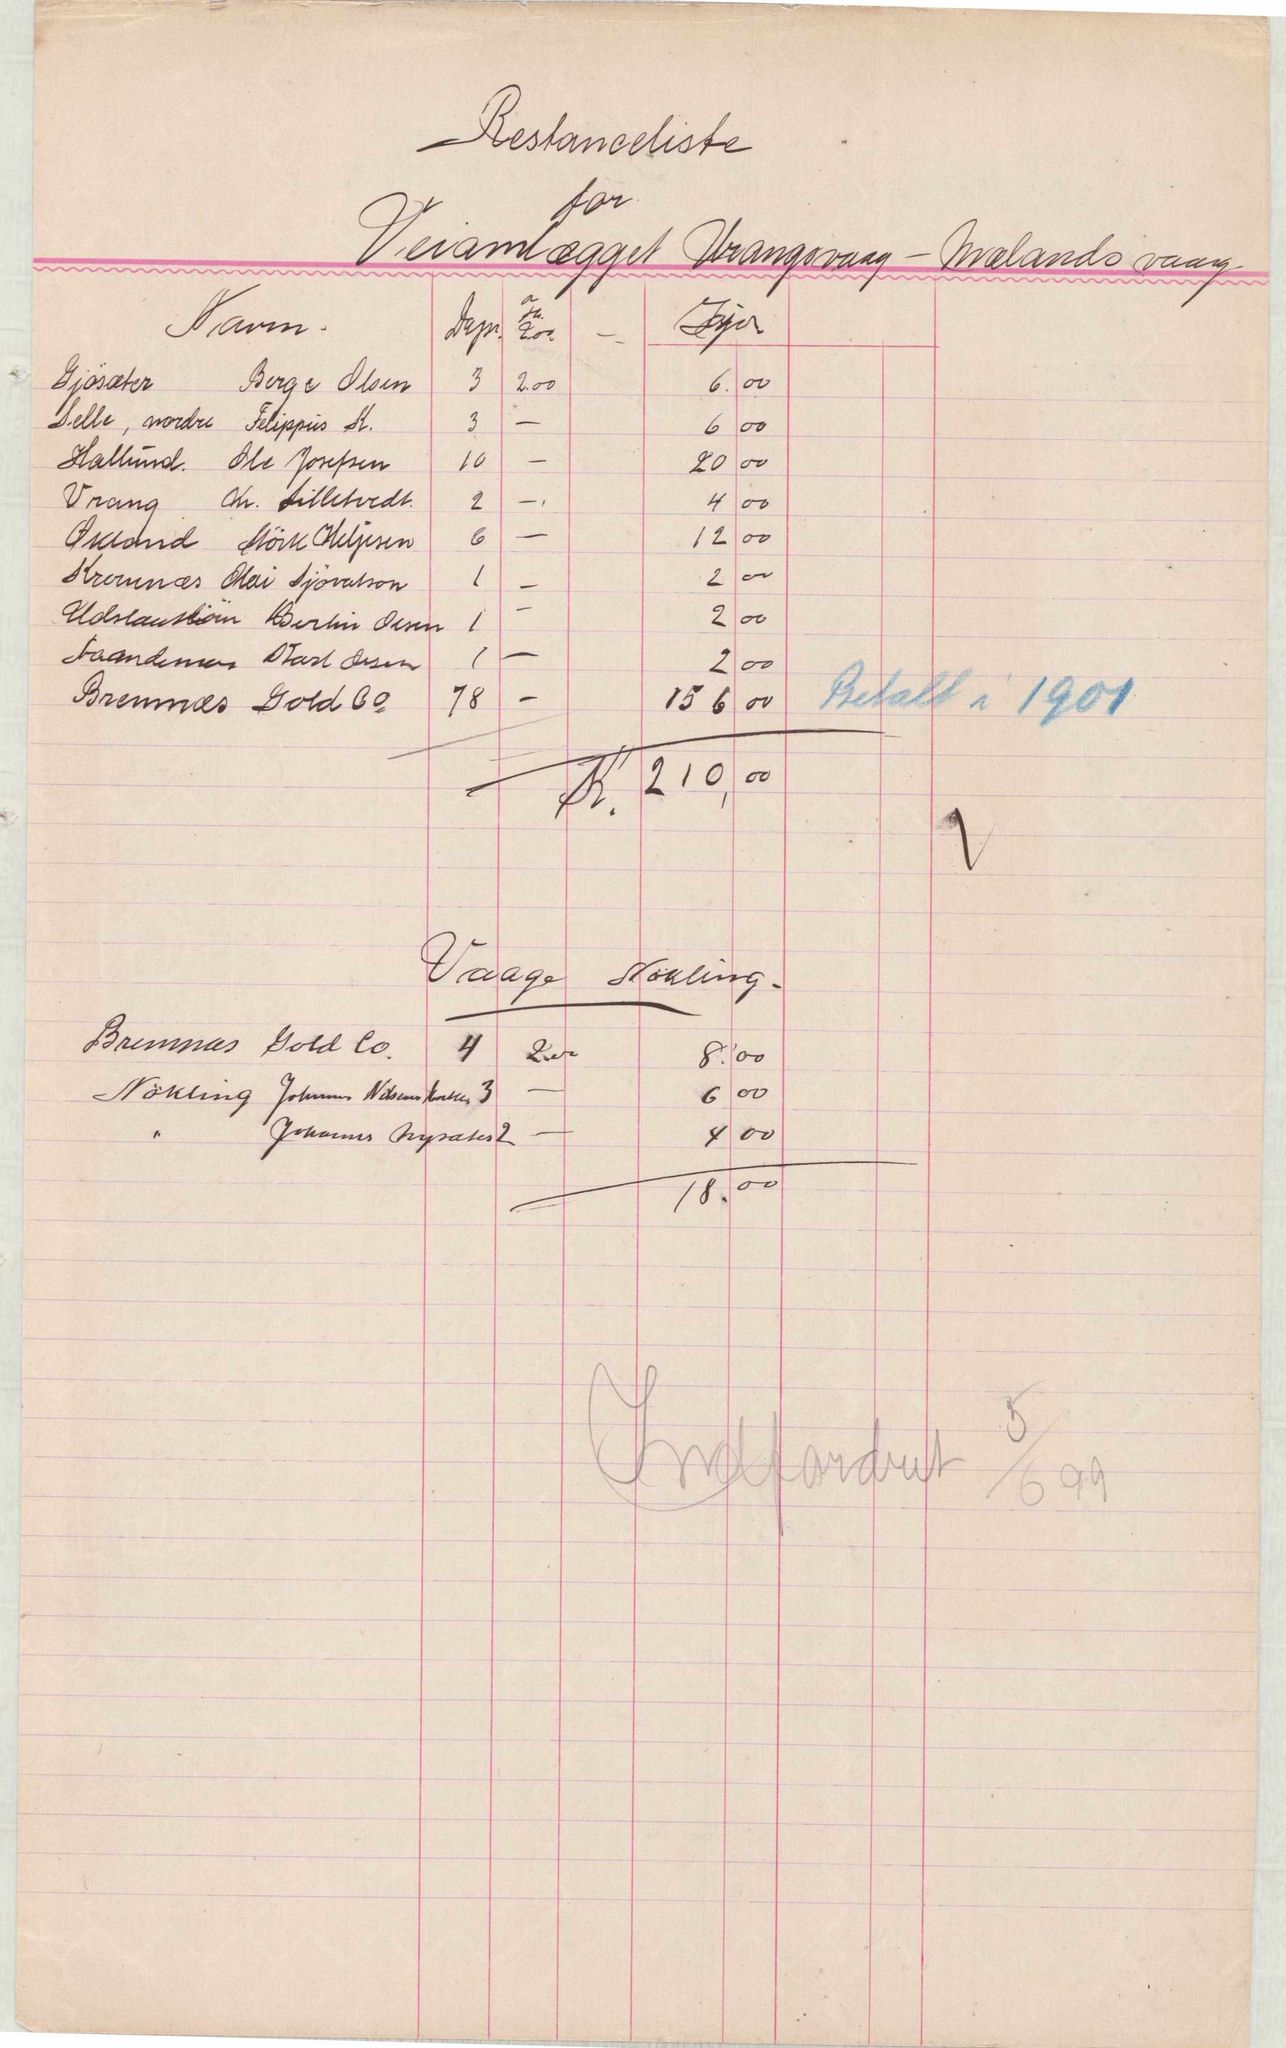 Restanceliste
for
Veianlægget Vrangsvaag – Mælandsvaag
Navn. Dagv. a Kr. 2.00 — Gjør
Gjösæter Berge Olsen 3 2.00 6.00
Selle, nordre Felippus K. 3 — 6 00
Hallund. Ole Josefsen 10 — 20 00
Vrang Chr. Lilletvedt. 2 — 4 00
Økland Störk Helgesen 6 — 12 00
Kræmnæs Olai Sjövatson 1 — 2 00
Bertin Olsen 1 — 2 00
Olsen 1 — 2 00
Bremnæs Gold Co. 78 — 156 00 Betalt i 1901
Kr. 210,00
Vaage Nökling.
Bremnæs Gold Co. 4 2.00 8.00
Nökling Johannes Nilsens 3 — 6 00
" Johannes 2 — 4 00
18.00
Indfordret 5/6 99